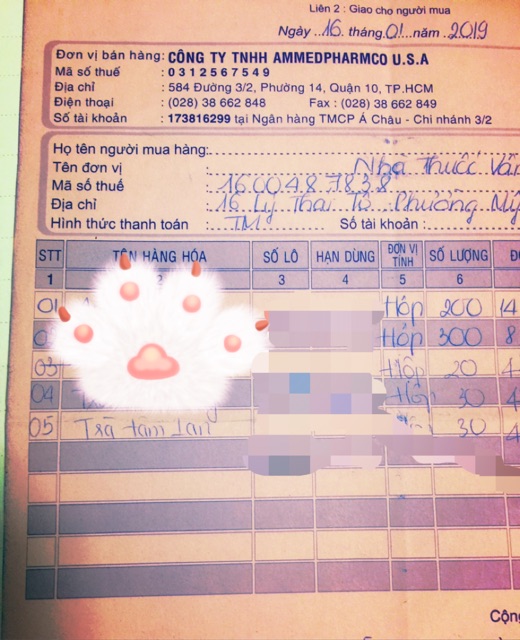 Liên 2 : Giao cho người mua
Ngày 16 tháng 01 năm 2019
Đơn vị bán hàng: CÔNG TY TNHH AMMEDPHARMCO U.S.A
Mã số thuế : 0312567549
Địa chỉ : 584 Đường 3/2, Phường 14, Quận 10, TP.HCM
Điện thoại : (028) 38 662 848 Fax : (028) 38 662 849
Số tài khoản : 173816299 tại Ngân hàng TMCP Á Châu - Chi nhánh 3/2
Họ tên người mua hàng:
Tên đơn vị Nhà Thuốc Văn
Mã số thuế : 1600487838
Địa chỉ : 16 Lý Thái Tổ Phường Mỹ
Hình thức thanh toán : TM Số tài khoản :
STT TÊN HÀNG HÓA SỐ LÔ HẠN DÙNG ĐƠN VỊ TÍNH SỐ LƯỢNG
1 3 4 5 6
01 Hộp 200 14
Hộp 300 8
03 Hộp 20
04 Hộp 30
05 Trà tâm lan 30
Cộng